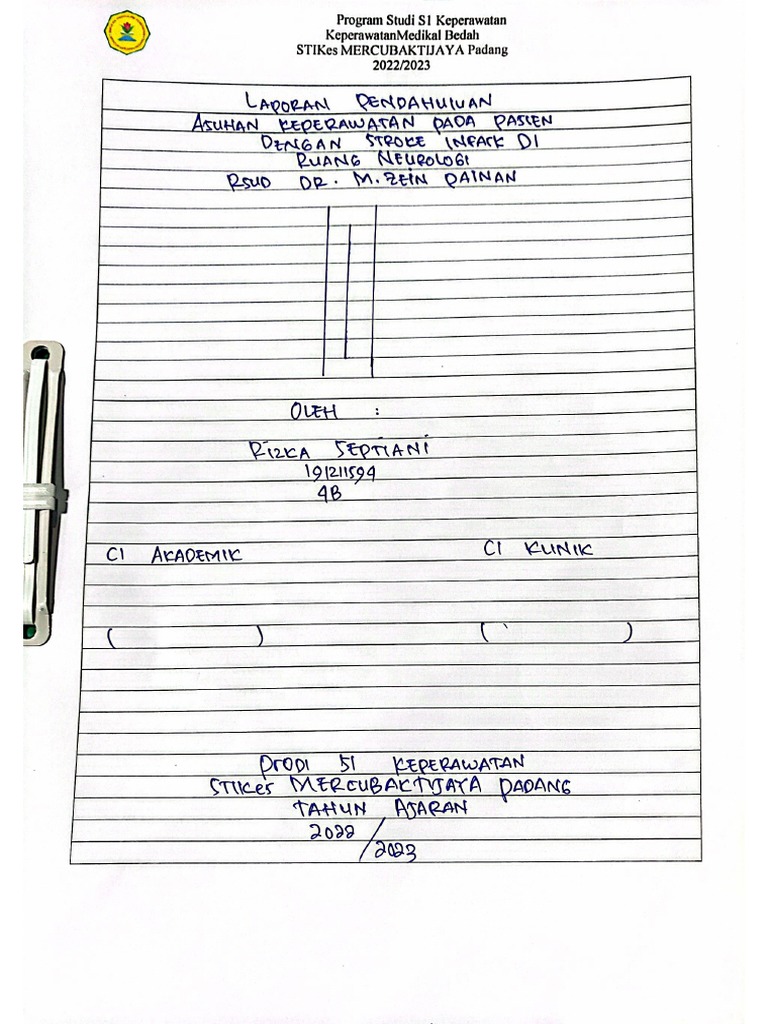 Program Studi S1 Keperawatan
KeperawatanMedikal Bedah
STIKes MERCUBAKTIJAYA Padang
2022/2023
LAPORAN PENDAHULUAN
ASUHAN KEPERAWATAN PADA PASIEN
DENGAN STROKE INFARK DI
RUANG NEUROLOGI
RSUD DR. M. ZEIN PAINAN
OLEH :
RIZKA SEPTIANI
191211594
4B
CI AKADEMIK CI KLINIK
( ) ( )
PRODI S1 KEPERAWATAN
STIKes MERCUBAKTIJAYA PADANG
TAHUN AJARAN
2022/2023